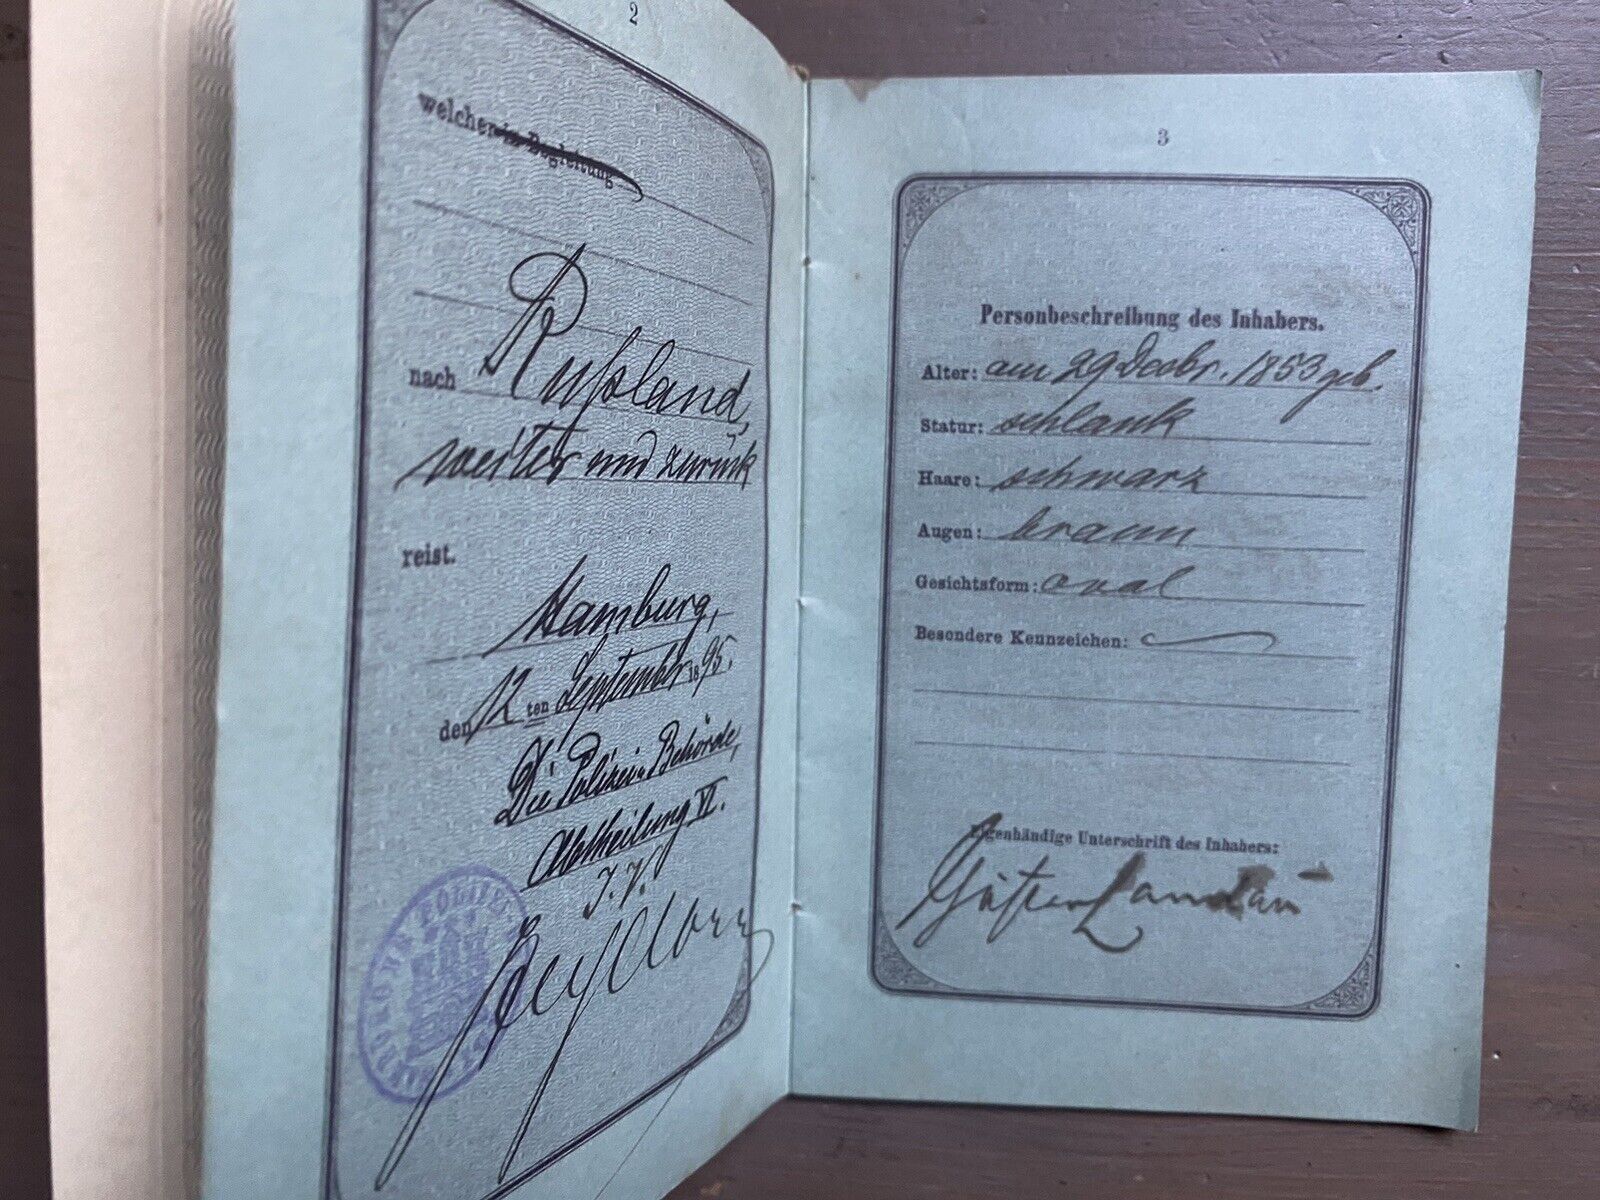 2
welcher in Begleitung
nach Rußland,
weiter und zurück
reist.
Hamburg,
den 12 ten September 1895.
Die Polizei Behörde,
Abtheilung VI.
I. V.
3
Personbeschreibung des Inhabers.
Alter: am 29 Decbr. 1853 geb.
Statur: schlank
Haare: schwarz
Augen: braun
Gesichtsform: oval
Besondere Kennzeichen:
Eigenhändige Unterschrift des Inhabers:
Landau